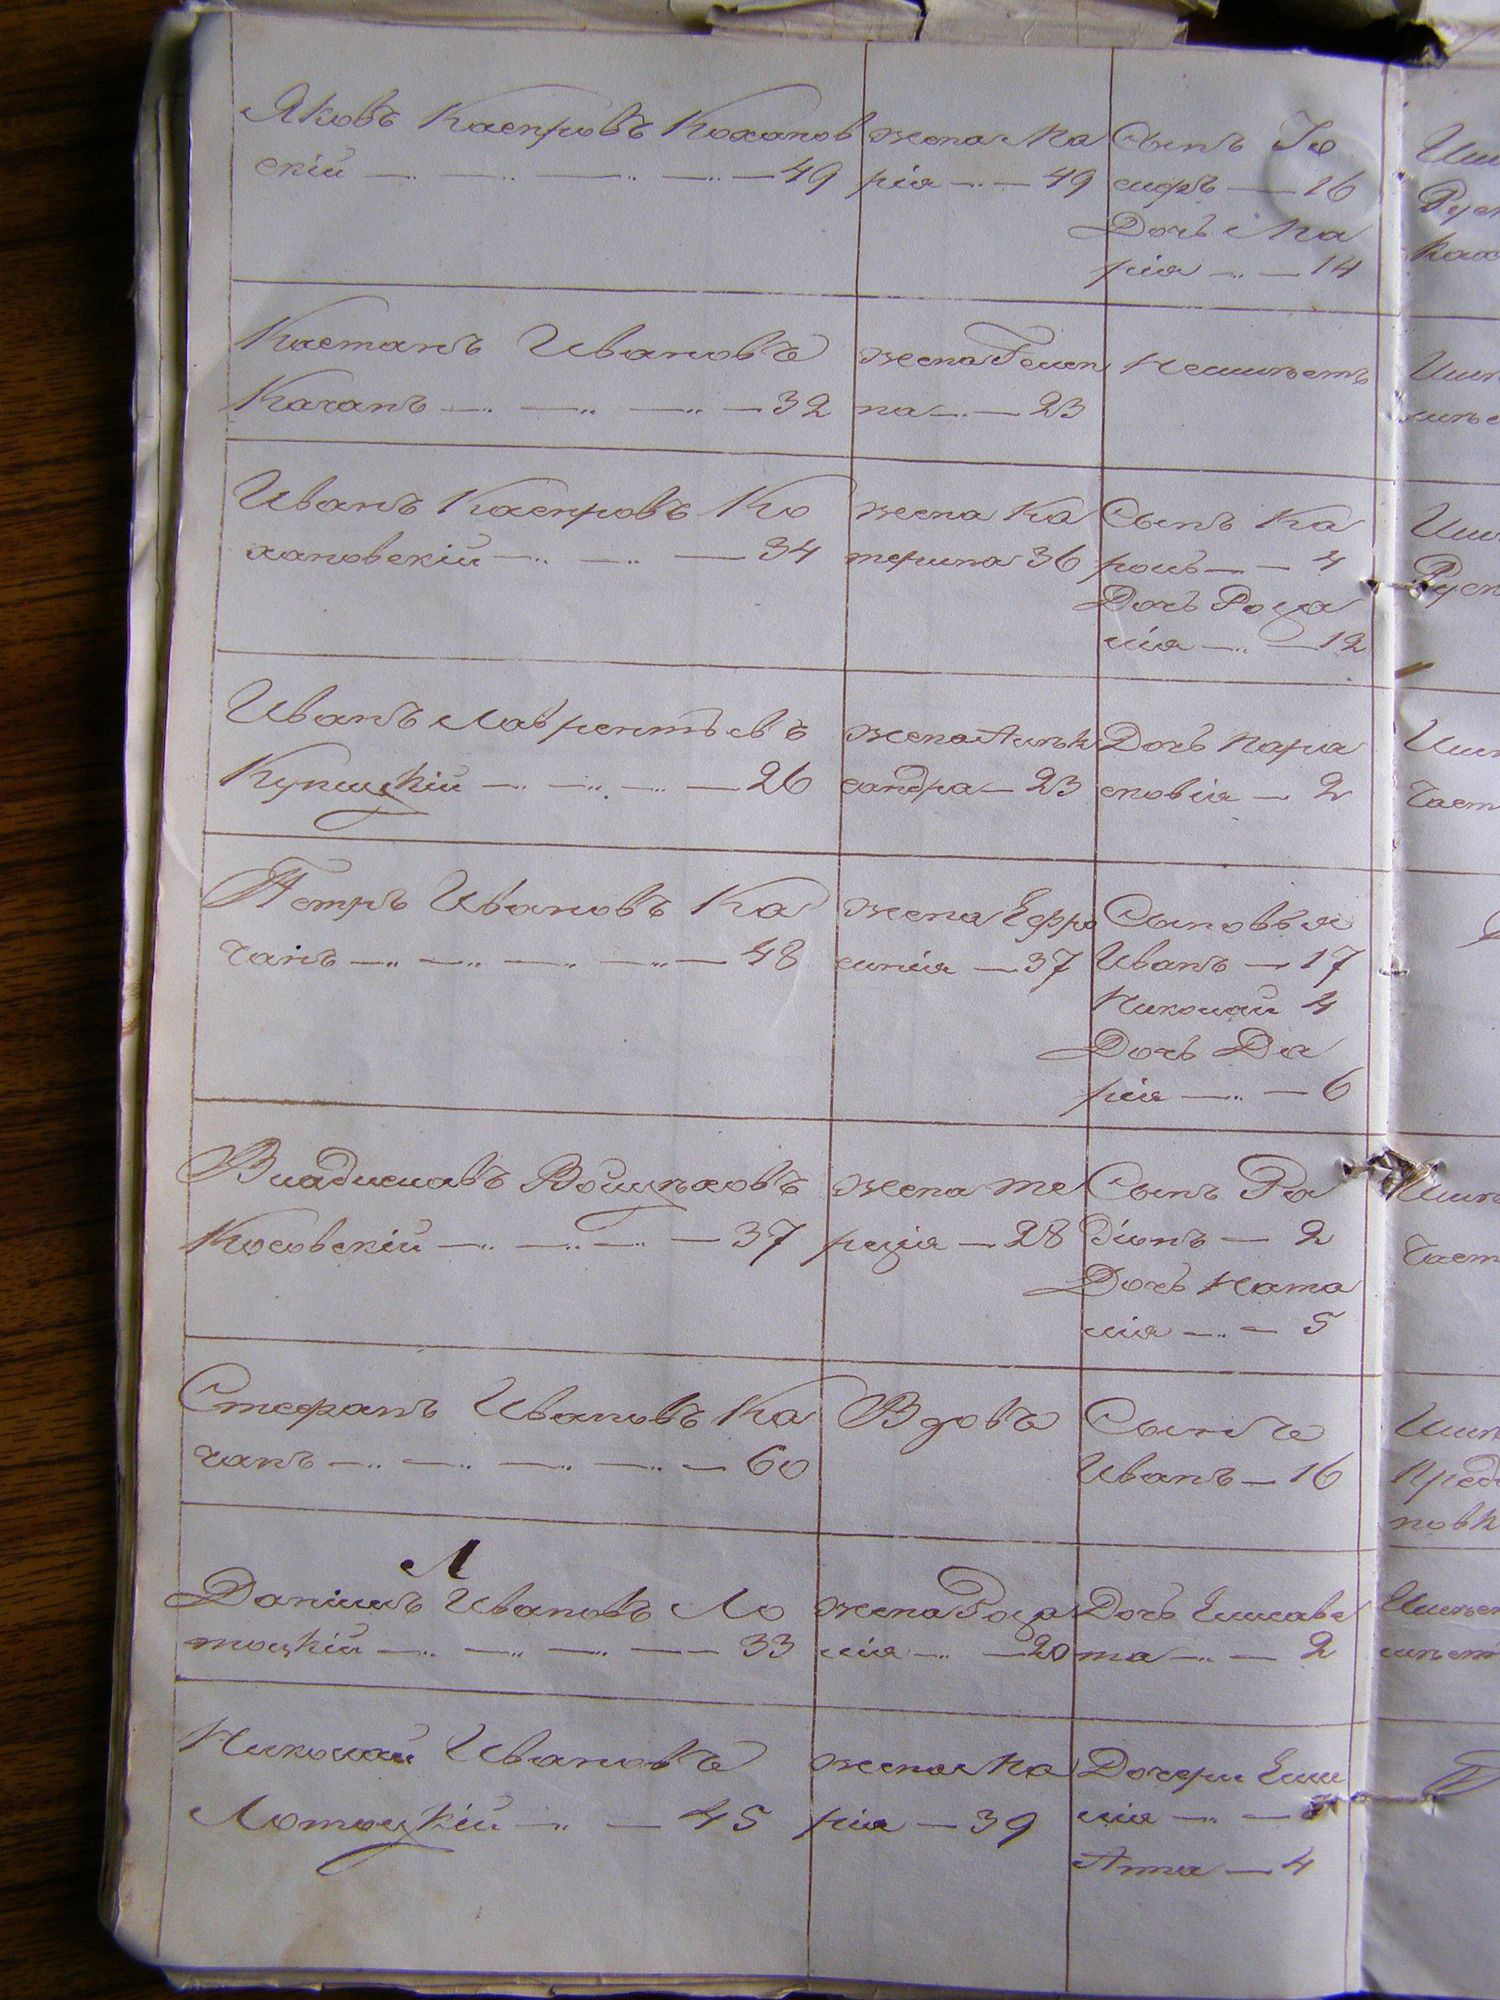 Яковъ Каспровъ Коханов
скій — 49
жена Ма
рія — 49
Сынъ Іо
сифъ — 16
Дочь Ма
рія — 14
Каетанъ Ивановъ
Качанъ — 32
жена
на — 23
Неимѣетъ
Иванъ Каспровъ Ко
хановскій — 34
жена Ка
терина 36
Сынъ Ка
роль — 4
Дочь Роза
лія — 12
Иванъ Лаврентьевъ
Купицкій — 26
жена Алек
сандра — 23
Дочь Пара
сковія — 2
Петръ Ивановъ Ка
чанъ — 48
жена Ефро
синія — 37
Сыновья
Иванъ — 17
Николай 4
Дочь Да
рія — 6
Владиславъ Войцѣховъ
Косовскій — 37
жена Те
резія — 28
Сынъ Ра
діонъ — 2
Дочь Ната
лія — 5
Стефанъ Ивановъ Ка
чанъ — 60
Вдовъ
Сынъ
Иванъ — 16
Л
Даніилъ Ивановъ Ло
тоцкій — 33
жена Роза
лія — 20
Дочь Елисаве
та — 2
Николай Ивановъ
Лотоцкій — 45
жена Ма
рія — 39
Дочери
лія —
Анна — 4